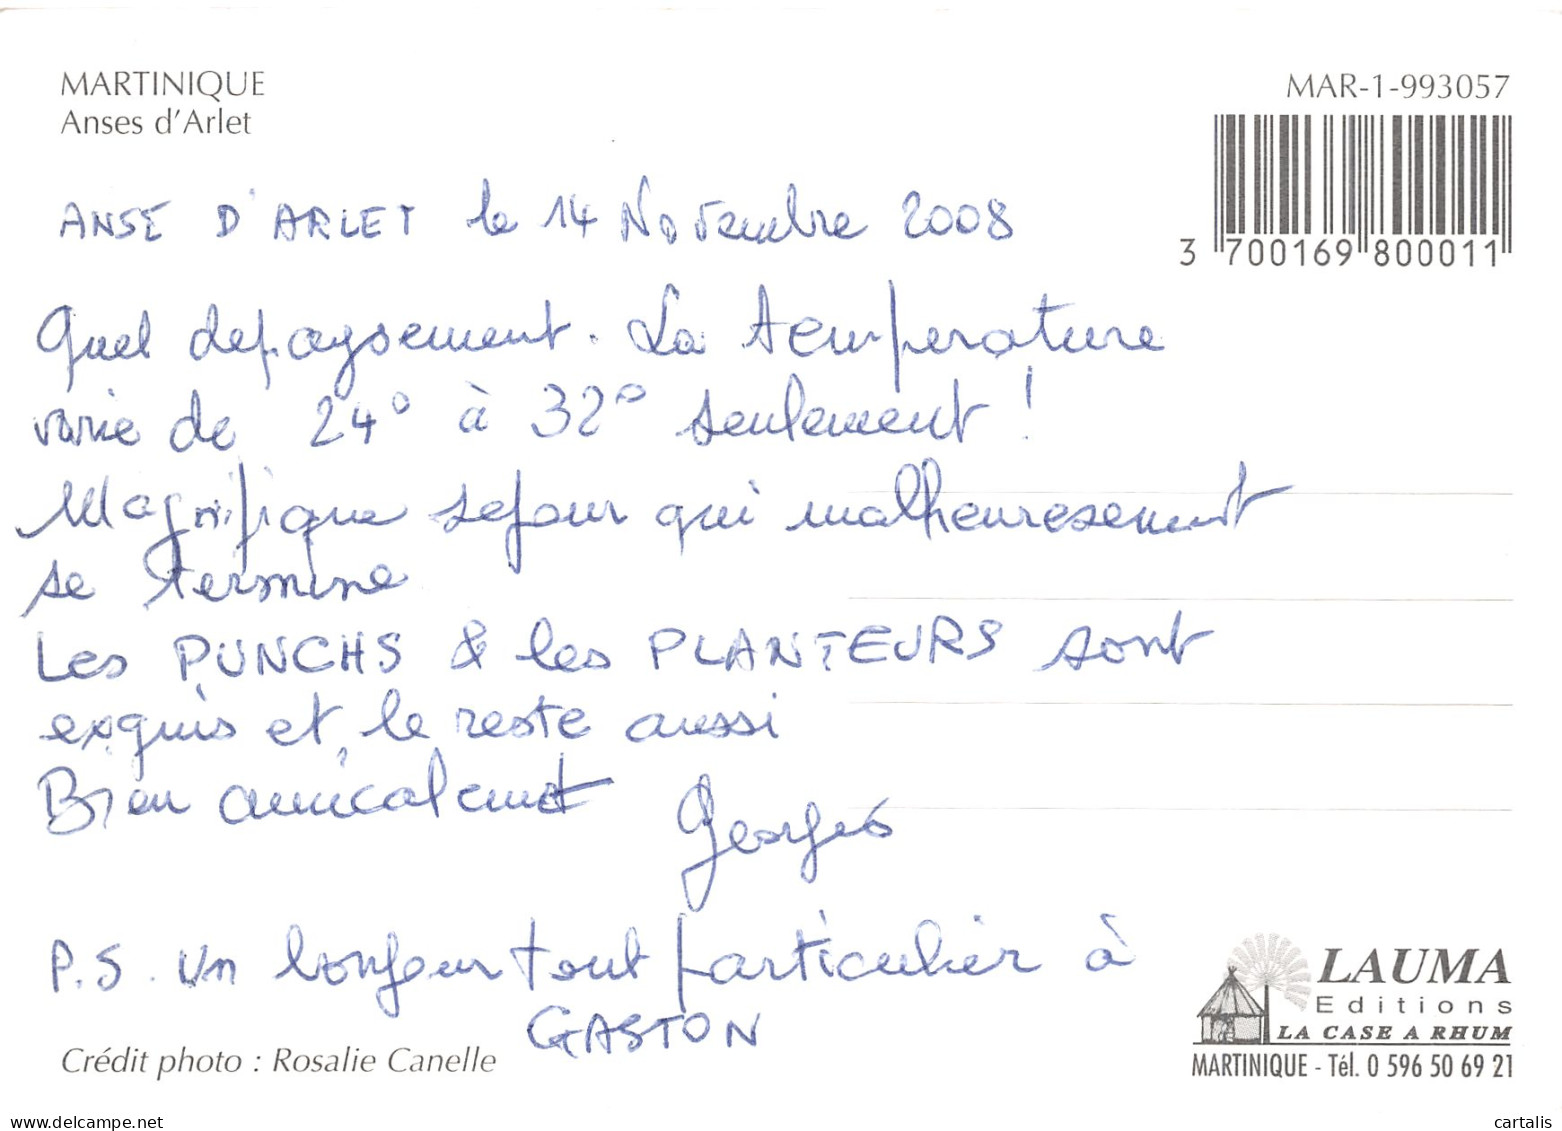 MARTINIQUE
Anses d'Arlet
MAR-1-993057
3 700169 800011
ANSE D'ARLET le 14 Novembre 2008
Quel depaysement. La temperature
varie de 24° à 32° seulement !
Magnifique sejour qui malheuresement
se termine
Les PUNCHS & les PLANTEURS sont
exquis et le reste aussi
Bien amicalement
Georges
P.S. Un bonjour tout particulier à
GASTON
Crédit photo : Rosalie Canelle
LAUMA
Editions
LA CASE A RHUM
MARTINIQUE - Tél. 0 596 50 69 21
delcampe.net
cartalis